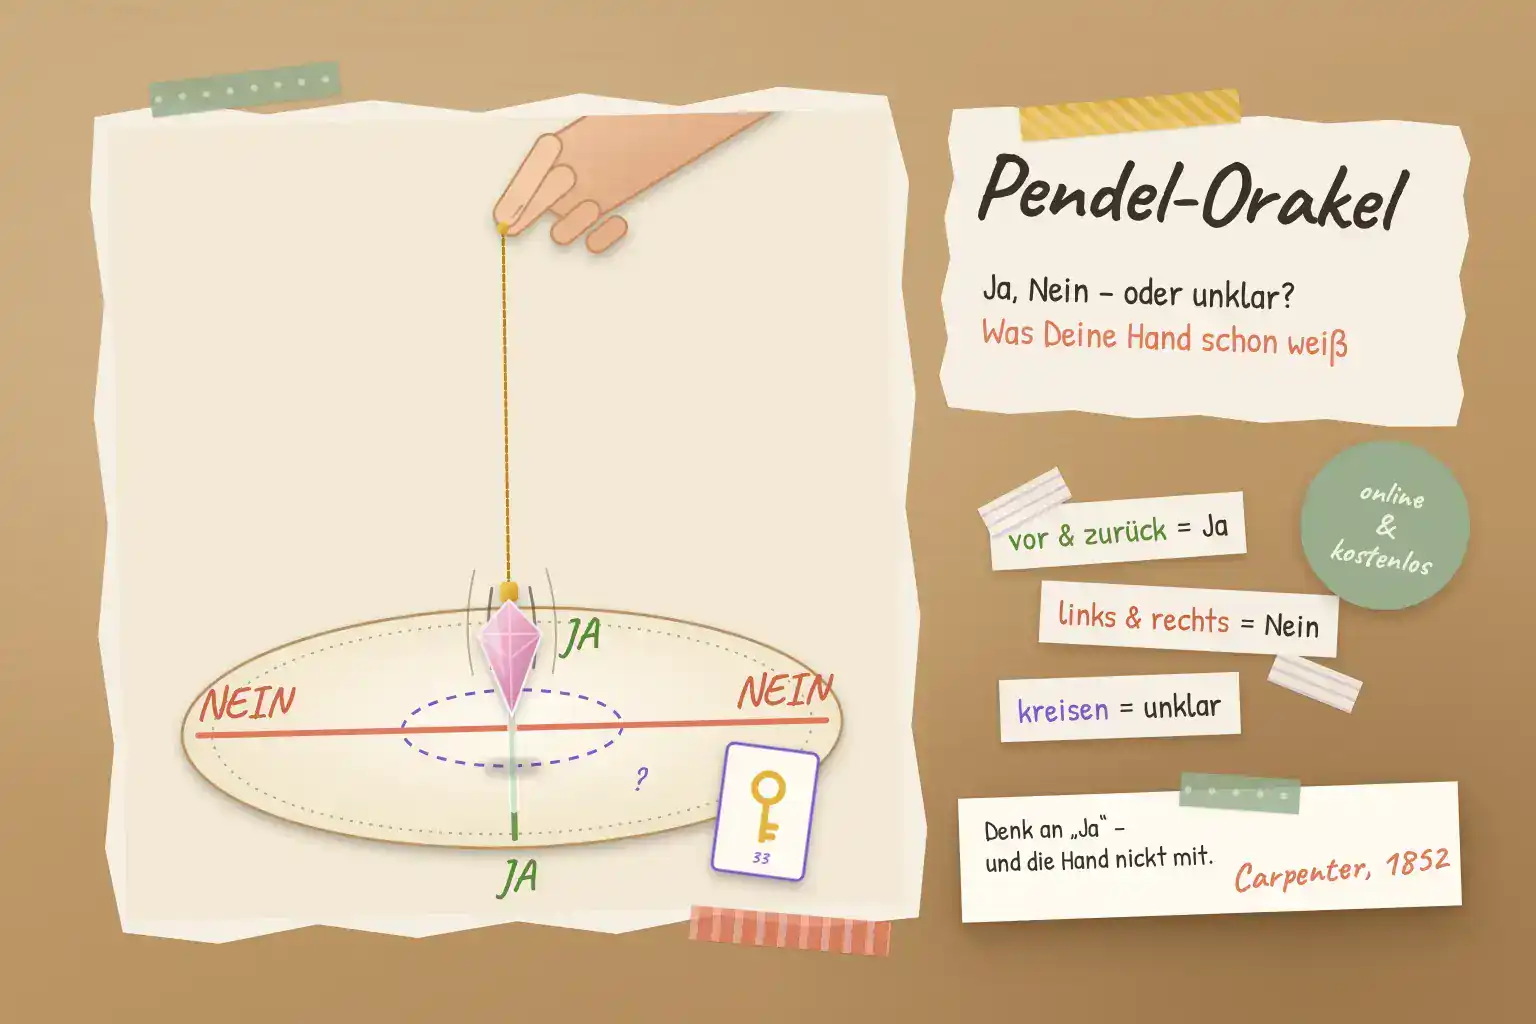 JA
NEIN
NEIN
?
33
JA
Pendel-Orakel
Ja, Nein – oder unklar?
Was Deine Hand schon weiß
online
&
kostenlos
vor & zurück = Ja
links & rechts = Nein
kreisen = unklar
Denk an „Ja“ –
und die Hand nickt mit.
Carpenter, 1852